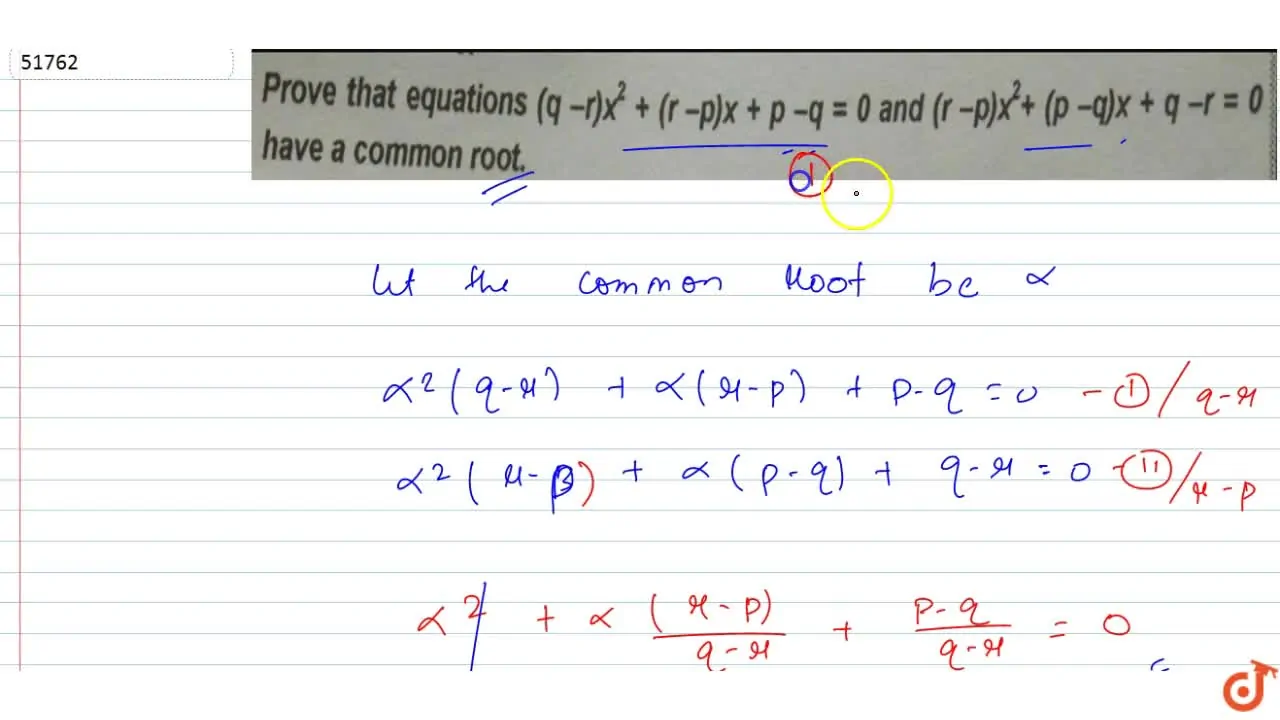 51762
Prove that equations (q –r)x² + (r –p)x + p –q = 0 and (r –p)x²+ (p –q)x + q –r = 0
have a common root.
Let the common root be α
α² (q-r) + α(r-p) + p-q = 0 - ① / q-r
α² (r-p) + α (p-q) + q-r = 0 - ⑪ / r-p
α² + α (r-p)/q-r + p-q/q-r = 0